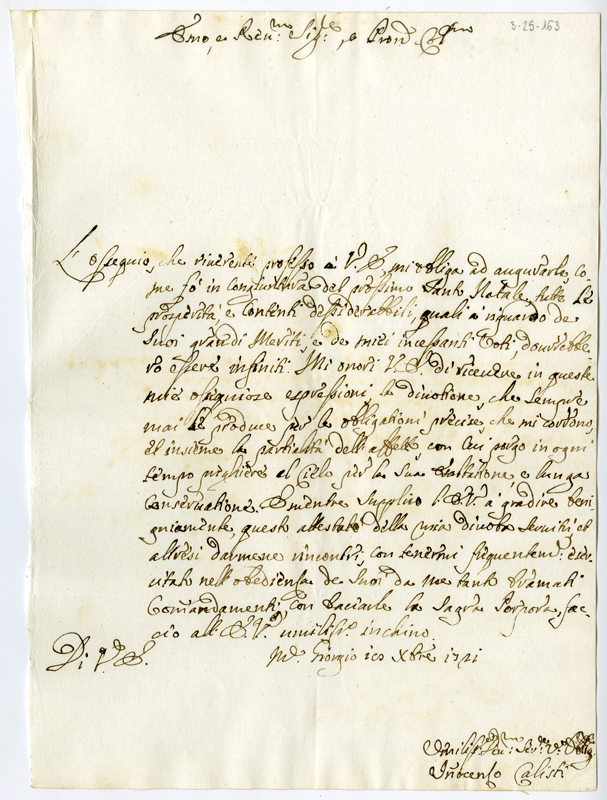 Emo, e Reu:mo Sig:re, e Pron Col:mo
3-25-163
L'ossequio, che riuerente professo à V. E., mi obliga ad augurarle, co
me fò in congiuntura del prossimo Santo Natale, tutte le
prosperità e contenti dessiderabili, quali a riguardo de
Suoi grandi Meriti, e de miei incessanti Voti, dourebbe
ro essere infiniti. Mi onori V. E. di riceuere in queste
mie ossequiose espressioni, la diuotione, che sempre
mai le produce per le obligationi precise, che mi corrono,
et insieme la partialità dell'affetto, con cui porgo in ogni
tempo preghiere al Cielo per la Sua Esaltatione, e lunga
Conseruatione. E mentre supplico l'E. V. à gradire beni
gniamente, questo attestato della mia diuota Seruitù, et
altresi darmene rincontri, con tenermi frequentem: eser
citato nell'obedienza de Suoi da me tanto bramati
Comandamenti, con baciarle la Sagra Porpora, fac
cio all' E. V. umiliss:o inchino.
Di V. E.
Mte Giorgio Xbre 1721
Vmiliss: Seu: Oblig
Innocenso Calisti